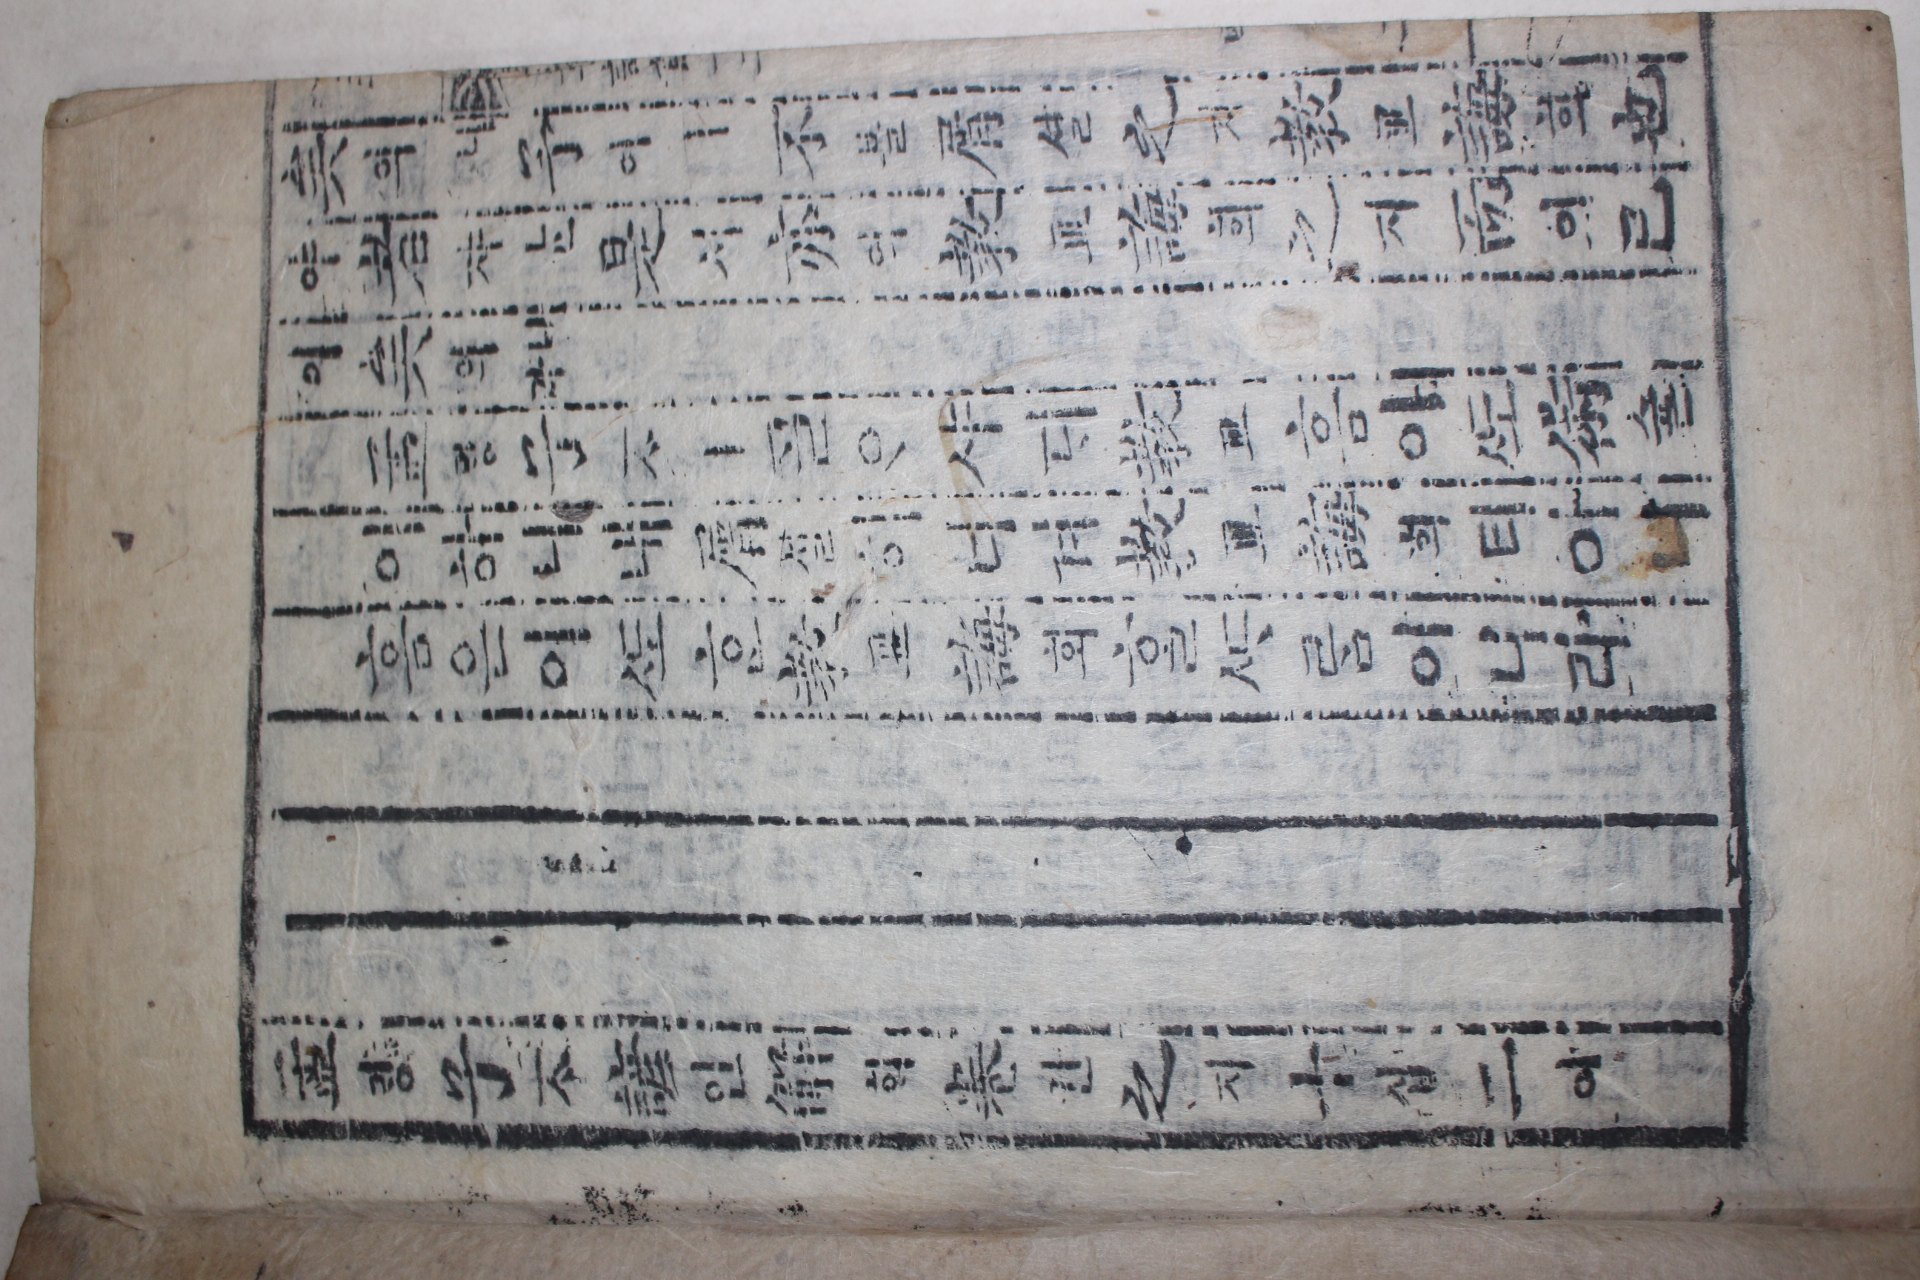 矣의니予여ㅣ不블屑셜之지敎교誨회也
야者쟈는是시亦역敎교誨회之지而이已
이矣의니라
孟ᄆᆡᆼ子ᄌᆞㅣᄀᆞᆯᄋᆞ샤ᄃᆡ敎교홈이ᄯᅩ術슐
이하니내屑셜히너겨敎교誨회티아니
홈은이ᄯᅩᄒᆞᆫ敎교誨회홀ᄯᆞᄅᆞᆷ이니라
孟ᄆᆡᆼ子ᄌᆞ諺언解ᄒᆡ卷권之지十십二이